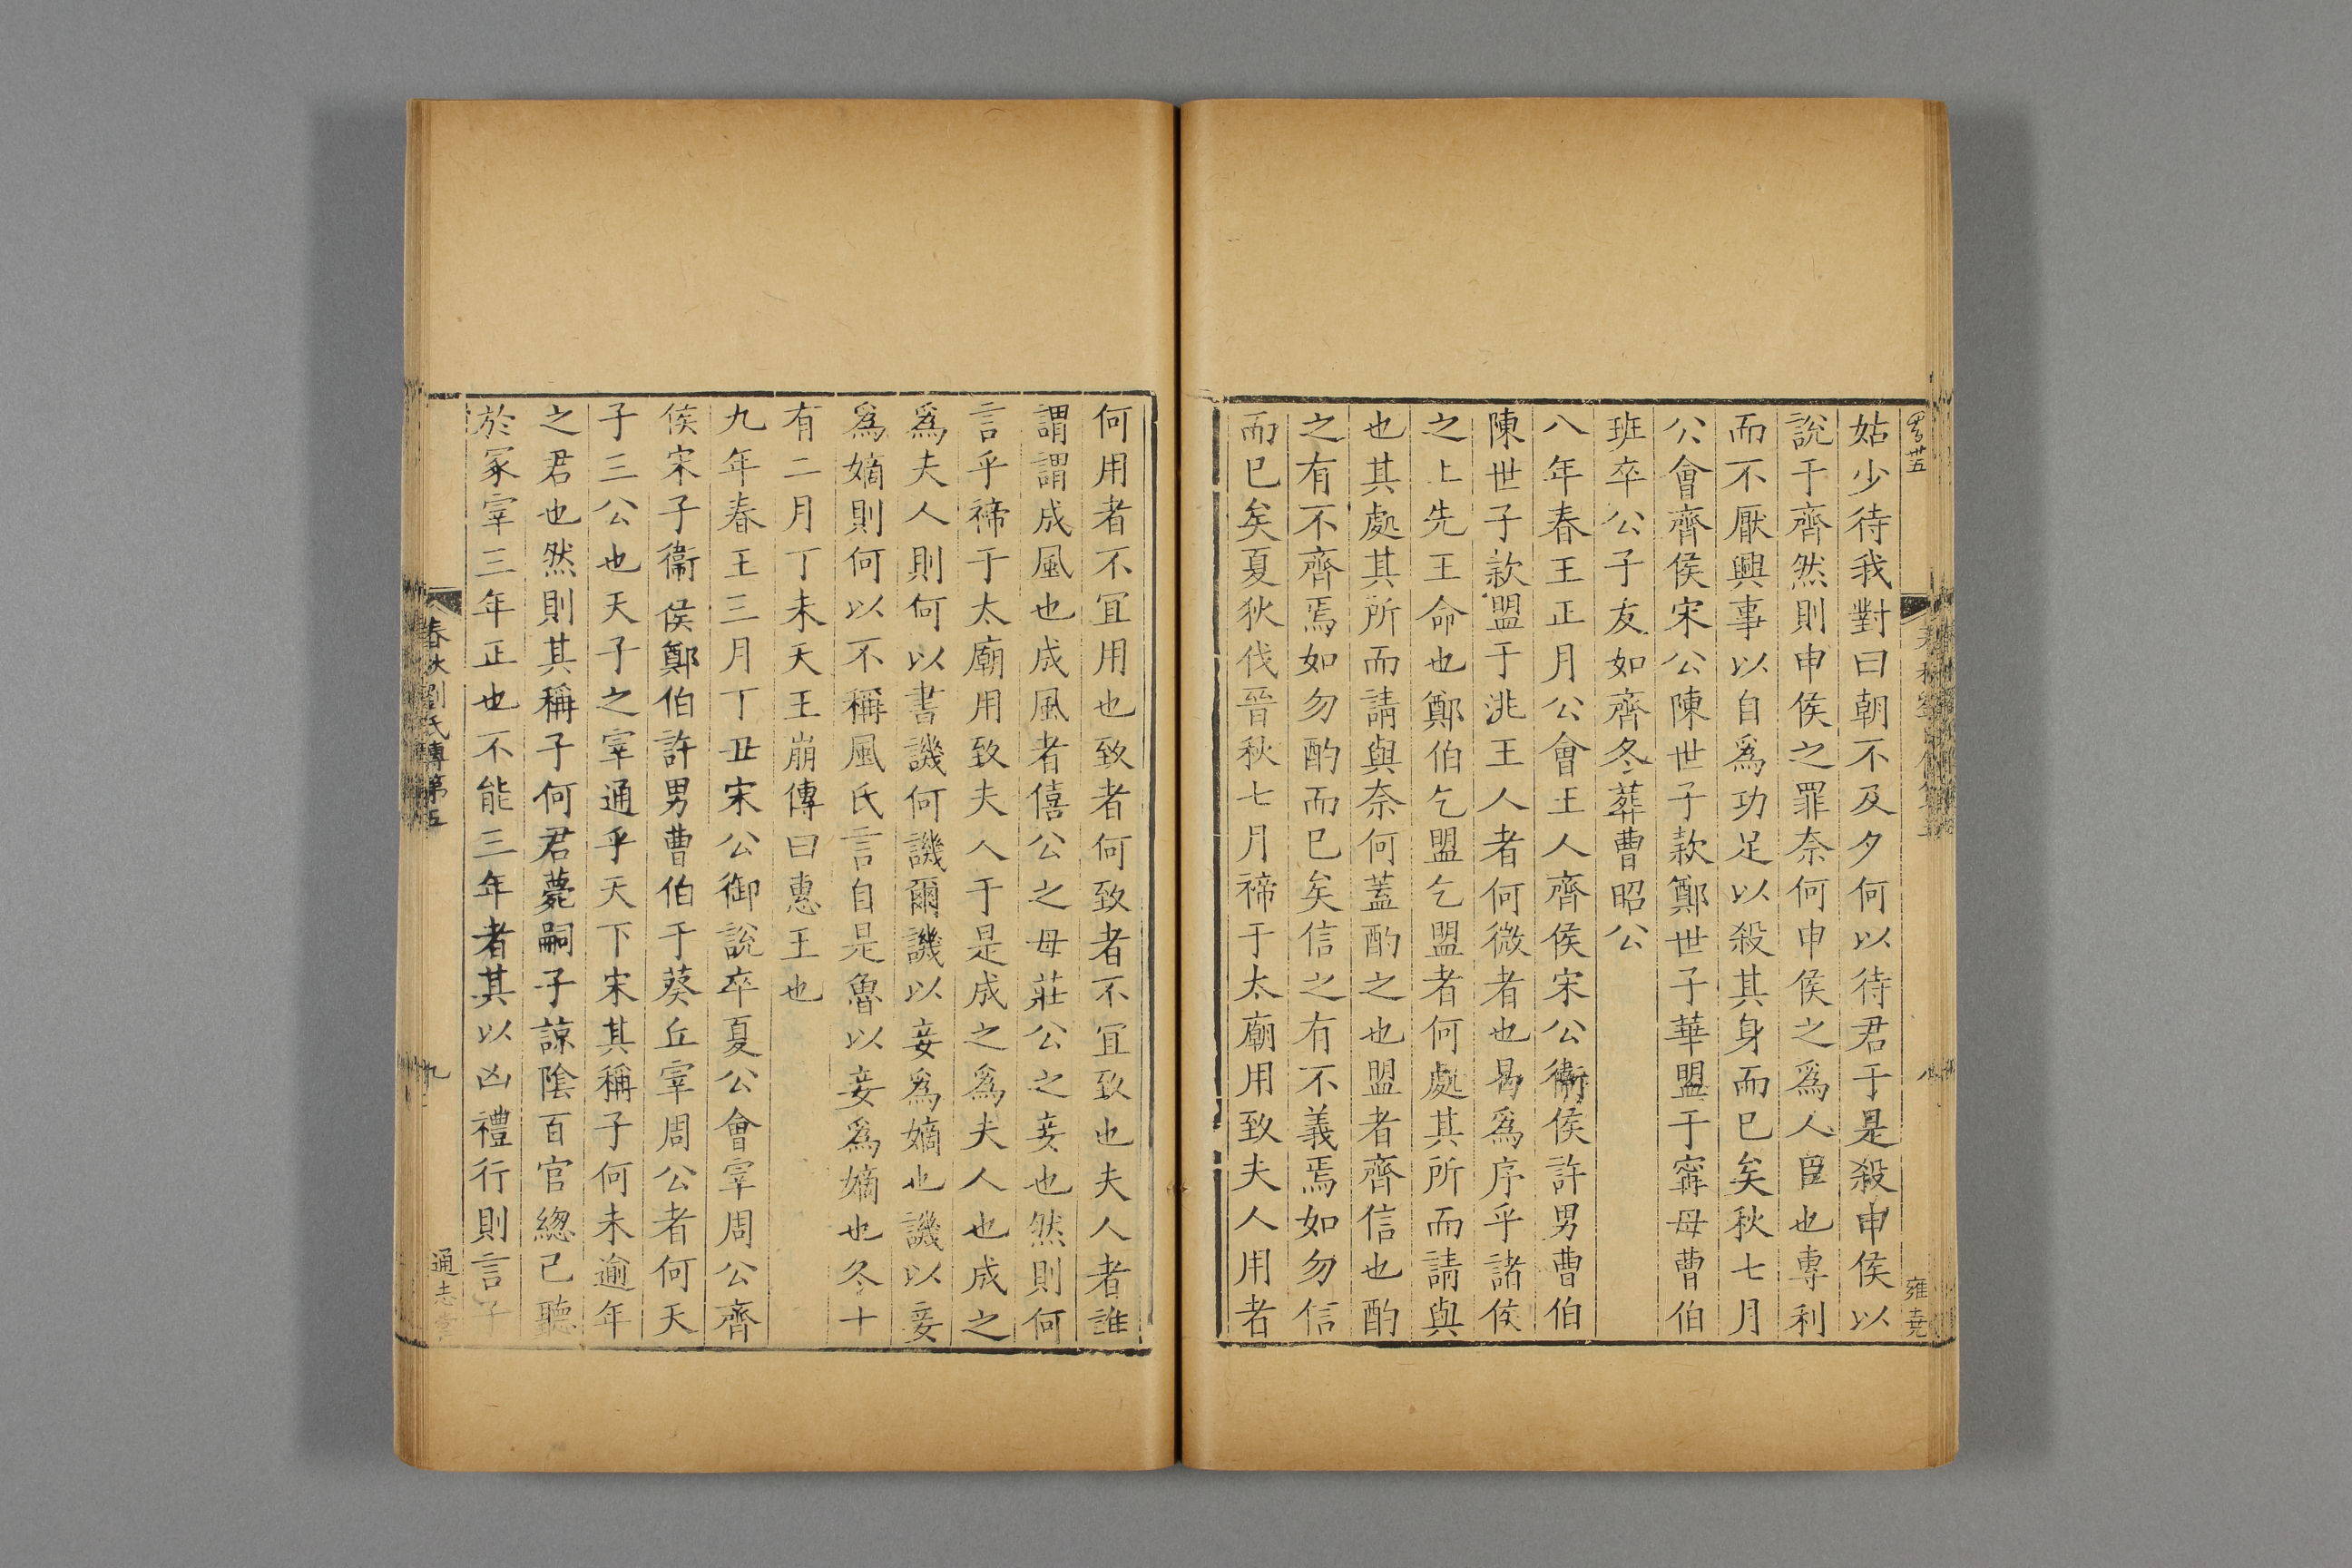 姑少待我對曰朝不及夕何以待君于是殺申侯以
說于齊然則申侯之罪奈何申侯之爲人臣也專利
而不厭興事以自爲功足以殺其身而已矣秋七月
公會齊侯宋公陳世子款鄭世子華盟于甯母曹伯
班卒公子友如齊冬葬曹昭公
八年春王正月公會王人齊侯宋公衞侯許男曹伯
陳世子款盟于洮王人者何微者也曷爲序乎諸侯
之上先王命也鄭伯乞盟乞盟者何處其所而請與
也其處其所而請與奈何蓋酌之也盟者齊信也酌
之有不齊焉如勿酌而已矣信之有不義焉如勿信
而已矣夏狄伐晉秋七月禘于太廟用致夫人用者
何用者不宜用也致者何致者不宜致也夫人者誰
謂謂成風也成風者僖公之母莊公之妾也然則何
言乎禘于太廟用致夫人于是成之爲夫人也成之
爲夫人則何以書譏何譏爾譏以妾爲嫡也譏以妾
爲嫡則何以不稱風氏言自是魯以妾爲嫡也冬十
有二月丁未天王崩傳曰惠王也
九年春王三月丁丑宋公御說卒夏公會宰周公齊
侯宋子衞侯鄭伯許男曹伯于葵丘宰周公者何天
子三公也天子之宰通乎天下宋其稱子何未逾年
之君也然則其稱子何君薨嗣子諒陰百官總己聽
於冢宰三年正也不能三年者其以凶禮行則言子
春秋劉氏傳第五
九
通志堂